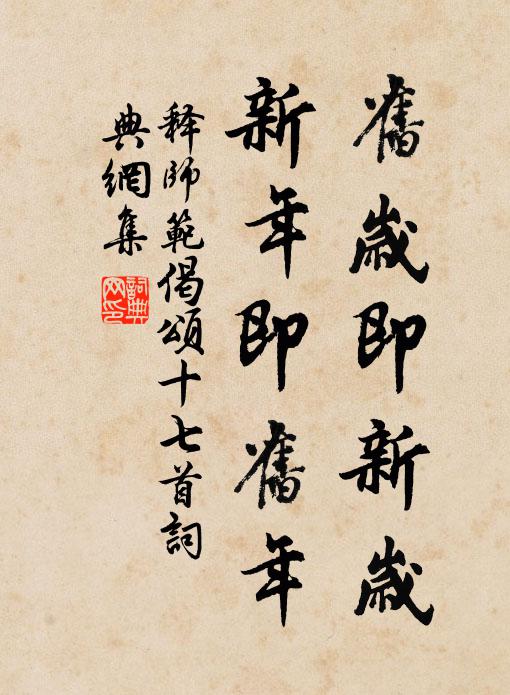 舊歲即新歲
新年即舊年
释師範偈頌十七首詞
典網集
詞典網印